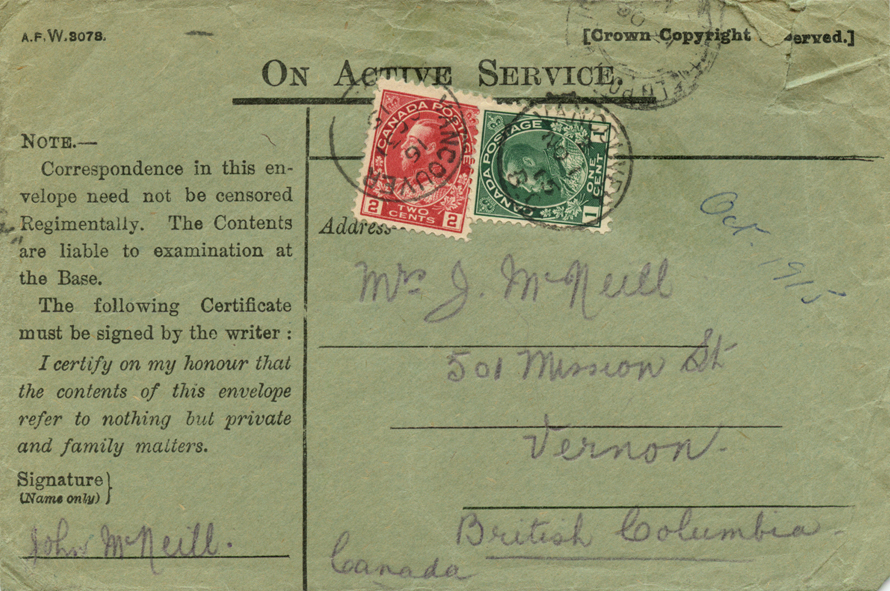 A.F.W.3078.
[Crown Copyright
erved.]
ON ACTIVE SERVICE.
NOTE.—
Correspondence in this en-
velope need not be censored
Regimentally. The Contents
are liable to examination at
the Base.
The following Certificate
must be signed by the writer :
I certify on my honour that
the contents of this envelope
refer to nothing but private
and family matters.
Signature
(Name only)
John McNeill.
CANADA POSTAGE
2 2
TWO
CENTS
CANADA POSTAGE
1
ONE
CENT
CANADA
1
VANCOUVER
VANCOUVER
Address
Oct. 1915
Mrs J. McNeill
501 Mission St
Vernon.
British Columbia.
Canada